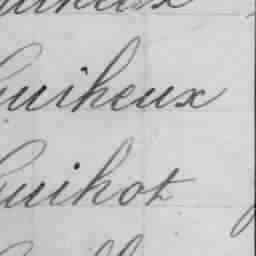 Guiheux
Guihot